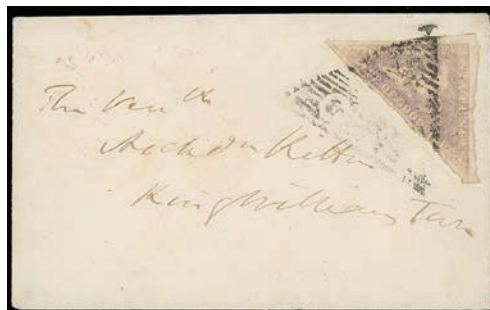 The Ven the
Archdn Kitton
King Williams Town